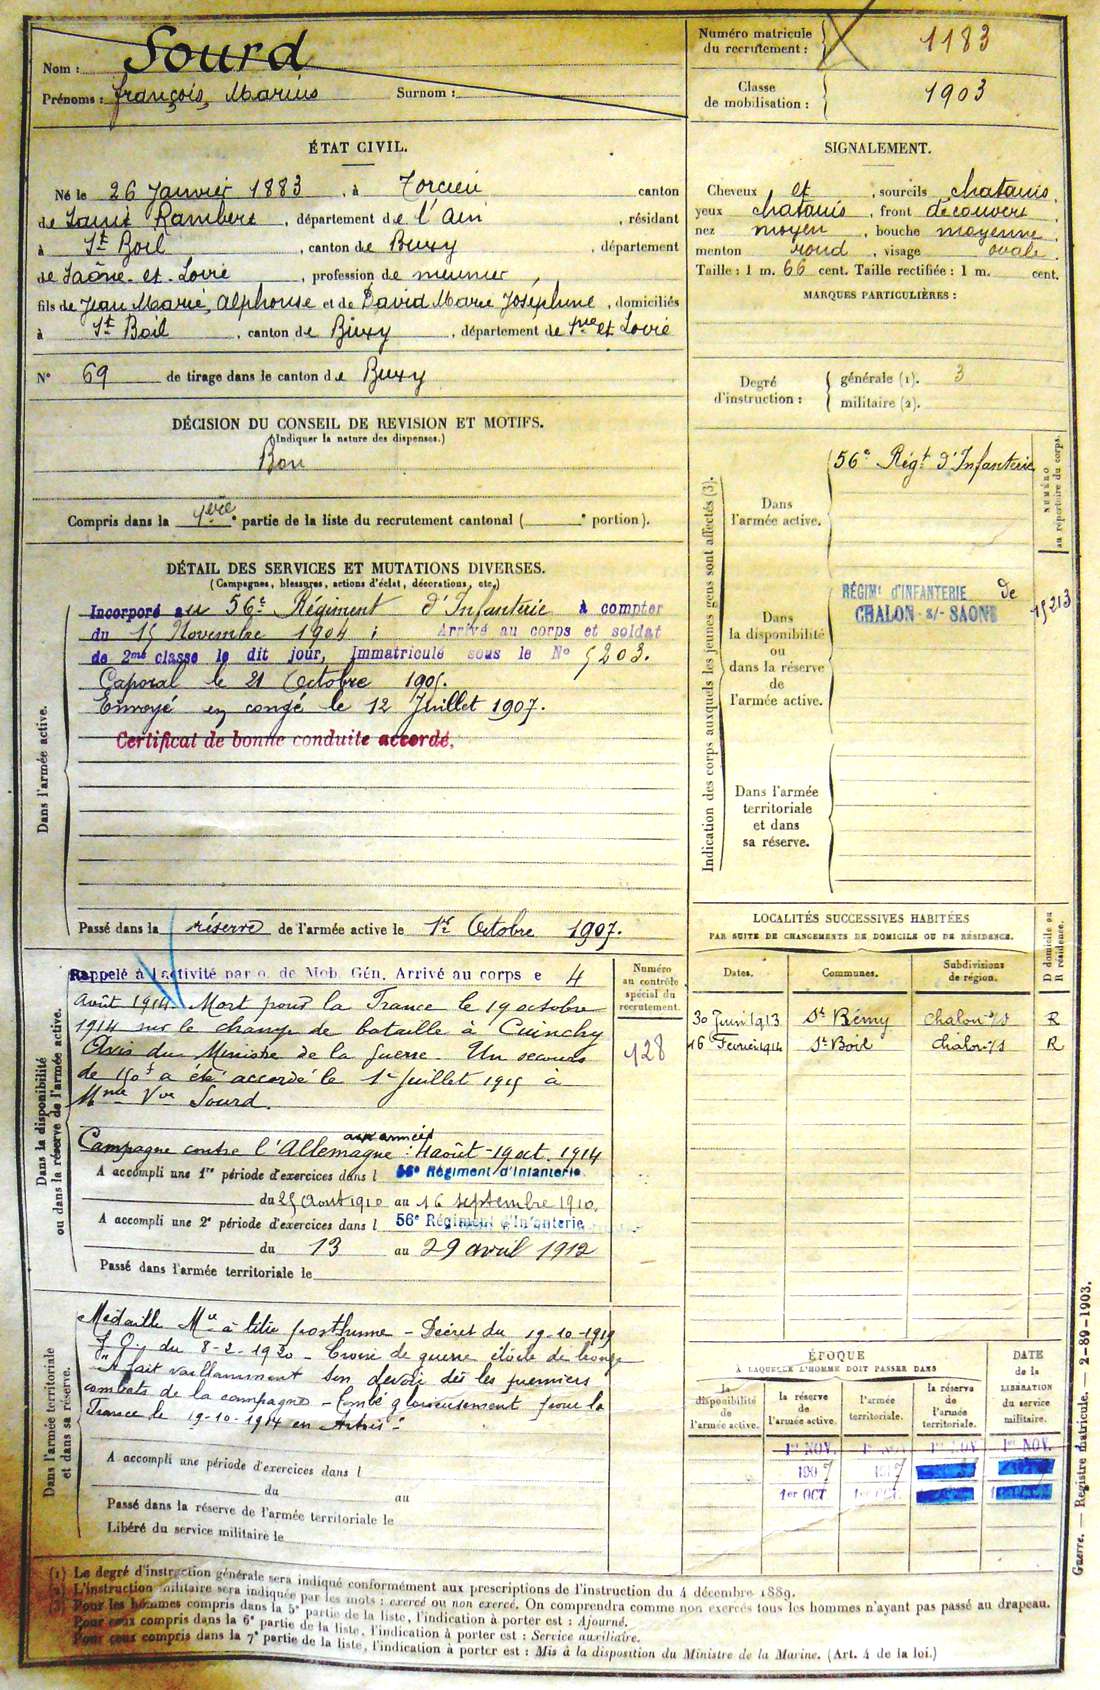 Nom : Sourd
Prénoms : françois, Marius Surnom :
Numéro matricule du recrutement : 1183
Classe de mobilisation : 1903
ÉTAT CIVIL.
Né le 26 Janvier 1883, à Torcieu canton
de Saint Rambert, département de l'Ain, résidant
à St Boil, canton de Buxy, département
de Saône-et-Loire, profession de meunier,
fils de Jean Marie, Alphonse et de David Marie Joséphine, domiciliés
à St Boil, canton de Buxy, département de Sne et Loire
N° 69 de tirage dans le canton de Buxy
SIGNALEMENT.
Cheveux et, sourcils chatains,
yeux chatains, front découvert,
nez moyen, bouche moyenne,
menton rond, visage ovale.
Taille : 1 m. 66 cent. Taille rectifiée : 1 m. cent.
MARQUES PARTICULIÈRES :
Degré d'instruction : générale (1). 3
militaire (2).
DÉCISION DU CONSEIL DE REVISION ET MOTIFS.
(Indiquer la nature des dispenses.)
Bon
Compris dans la 1ère partie de la liste du recrutement cantonal ( portion).
DÉTAIL DES SERVICES ET MUTATIONS DIVERSES.
(Campagnes, blessures, actions d'éclat, décorations, etc.)
Dans l'armée active.
Incorporé au 56e Régiment d'Infanterie à compter
du 15 Novembre 1904 ; Arrivé au corps et soldat
de 2me classe le dit jour, Immatriculé sous le N° 5203.
Caporal le 21 Octobre 1905.
Envoyé en congé le 12 Juillet 1907.
Certificat de bonne conduite accordé.
Passé dans la réserve de l'armée active le 1er Octobre 1907.
Indication des corps auxquels les jeunes gens sont affectés (3).
NUMÉRO au répertoire du corps.
Dans l'armée active.
56e Régt d'Infanterie
Dans la disponibilité ou dans la réserve de l'armée active.
RÉGIMt D'INFANTERIE de
CHALON-s/-SAONE
15213
Dans l'armée territoriale et dans sa réserve.
Dans la disponibilité
ou dans la réserve de l'armée active.
Numéro au contrôle spécial du recrutement.
128
Rappelé à l'activité par o. de Mob. Gén. Arrivé au corps e 4
Août 1914. Mort pour la France le 19 octobre
1914 sur le champ de bataille à Cuinchy
Avis du Ministre de la guerre. Un secours
de 150f a été accordé le 1er Juillet 1915 à
Mme Vve Sourd.
aux armées
Campagne contre l'Allemagne : 4 août - 19 oct. 1914
A accompli une 1re période d'exercices dans l 56e Régiment d'Infanterie
du 25 Août 1910 au 16 septembre 1910.
A accompli une 2e période d'exercices dans l 56e Régiment d'Infanterie
du 13 au 29 avril 1912
Passé dans l'armée territoriale le
LOCALITÉS SUCCESSIVES HABITÉES
PAR SUITE DE CHANGEMENTS DE DOMICILE OU DE RÉSIDENCE.
Dates. Communes. Subdivisions de région. D domicile ou R résidence.
30 Juin 1913 St Rémy Chalon s/S R
16 Février 1914 St Boil Chalon s/S R
Dans l'armée territoriale
et dans sa réserve.
Médaille Mre à titre posthume - Décret du 19-10-1919
J.O. du 8-2-1920 - Croix de guerre étoile de bronze
"A fait vaillamment son devoir dès les premiers
combats de la campagne - tombé glorieusement pour la
France le 19-10-1914 en Artois"
A accompli une période d'exercices dans l
du au
Passé dans la réserve de l'armée territoriale le
Libéré du service militaire le
ÉPOQUE
À LAQUELLE L'HOMME DOIT PASSER DANS
DATE de la LIBÉRATION du service militaire.
la disponibilité de l'armée active. la réserve de l'armée active. l'armée territoriale. la réserve de l'armée territoriale.
1er NOV. 1er NOV 1er NOV 1er NOV.
1907 1917
1er OCT. 1er OCT.
(1) Le degré d'instruction générale sera indiqué conformément aux prescriptions de l'instruction du 4 décembre 1889.
(2) L'instruction militaire sera indiquée par les mots : exercé ou non exercé. On comprendra comme non exercés tous les hommes n'ayant pas passé au drapeau.
(3) Pour les hommes compris dans la 5e partie de la liste, l'indication à porter est : Ajourné.
Pour ceux compris dans la 6e partie de la liste, l'indication à porter est : Service auxiliaire.
Pour ceux compris dans la 7e partie de la liste, l'indication à porter est : Mis à la disposition du Ministre de la Marine. (Art. 4 de la loi.)
Guerre. — Registre matricule. — 2-89-1903.